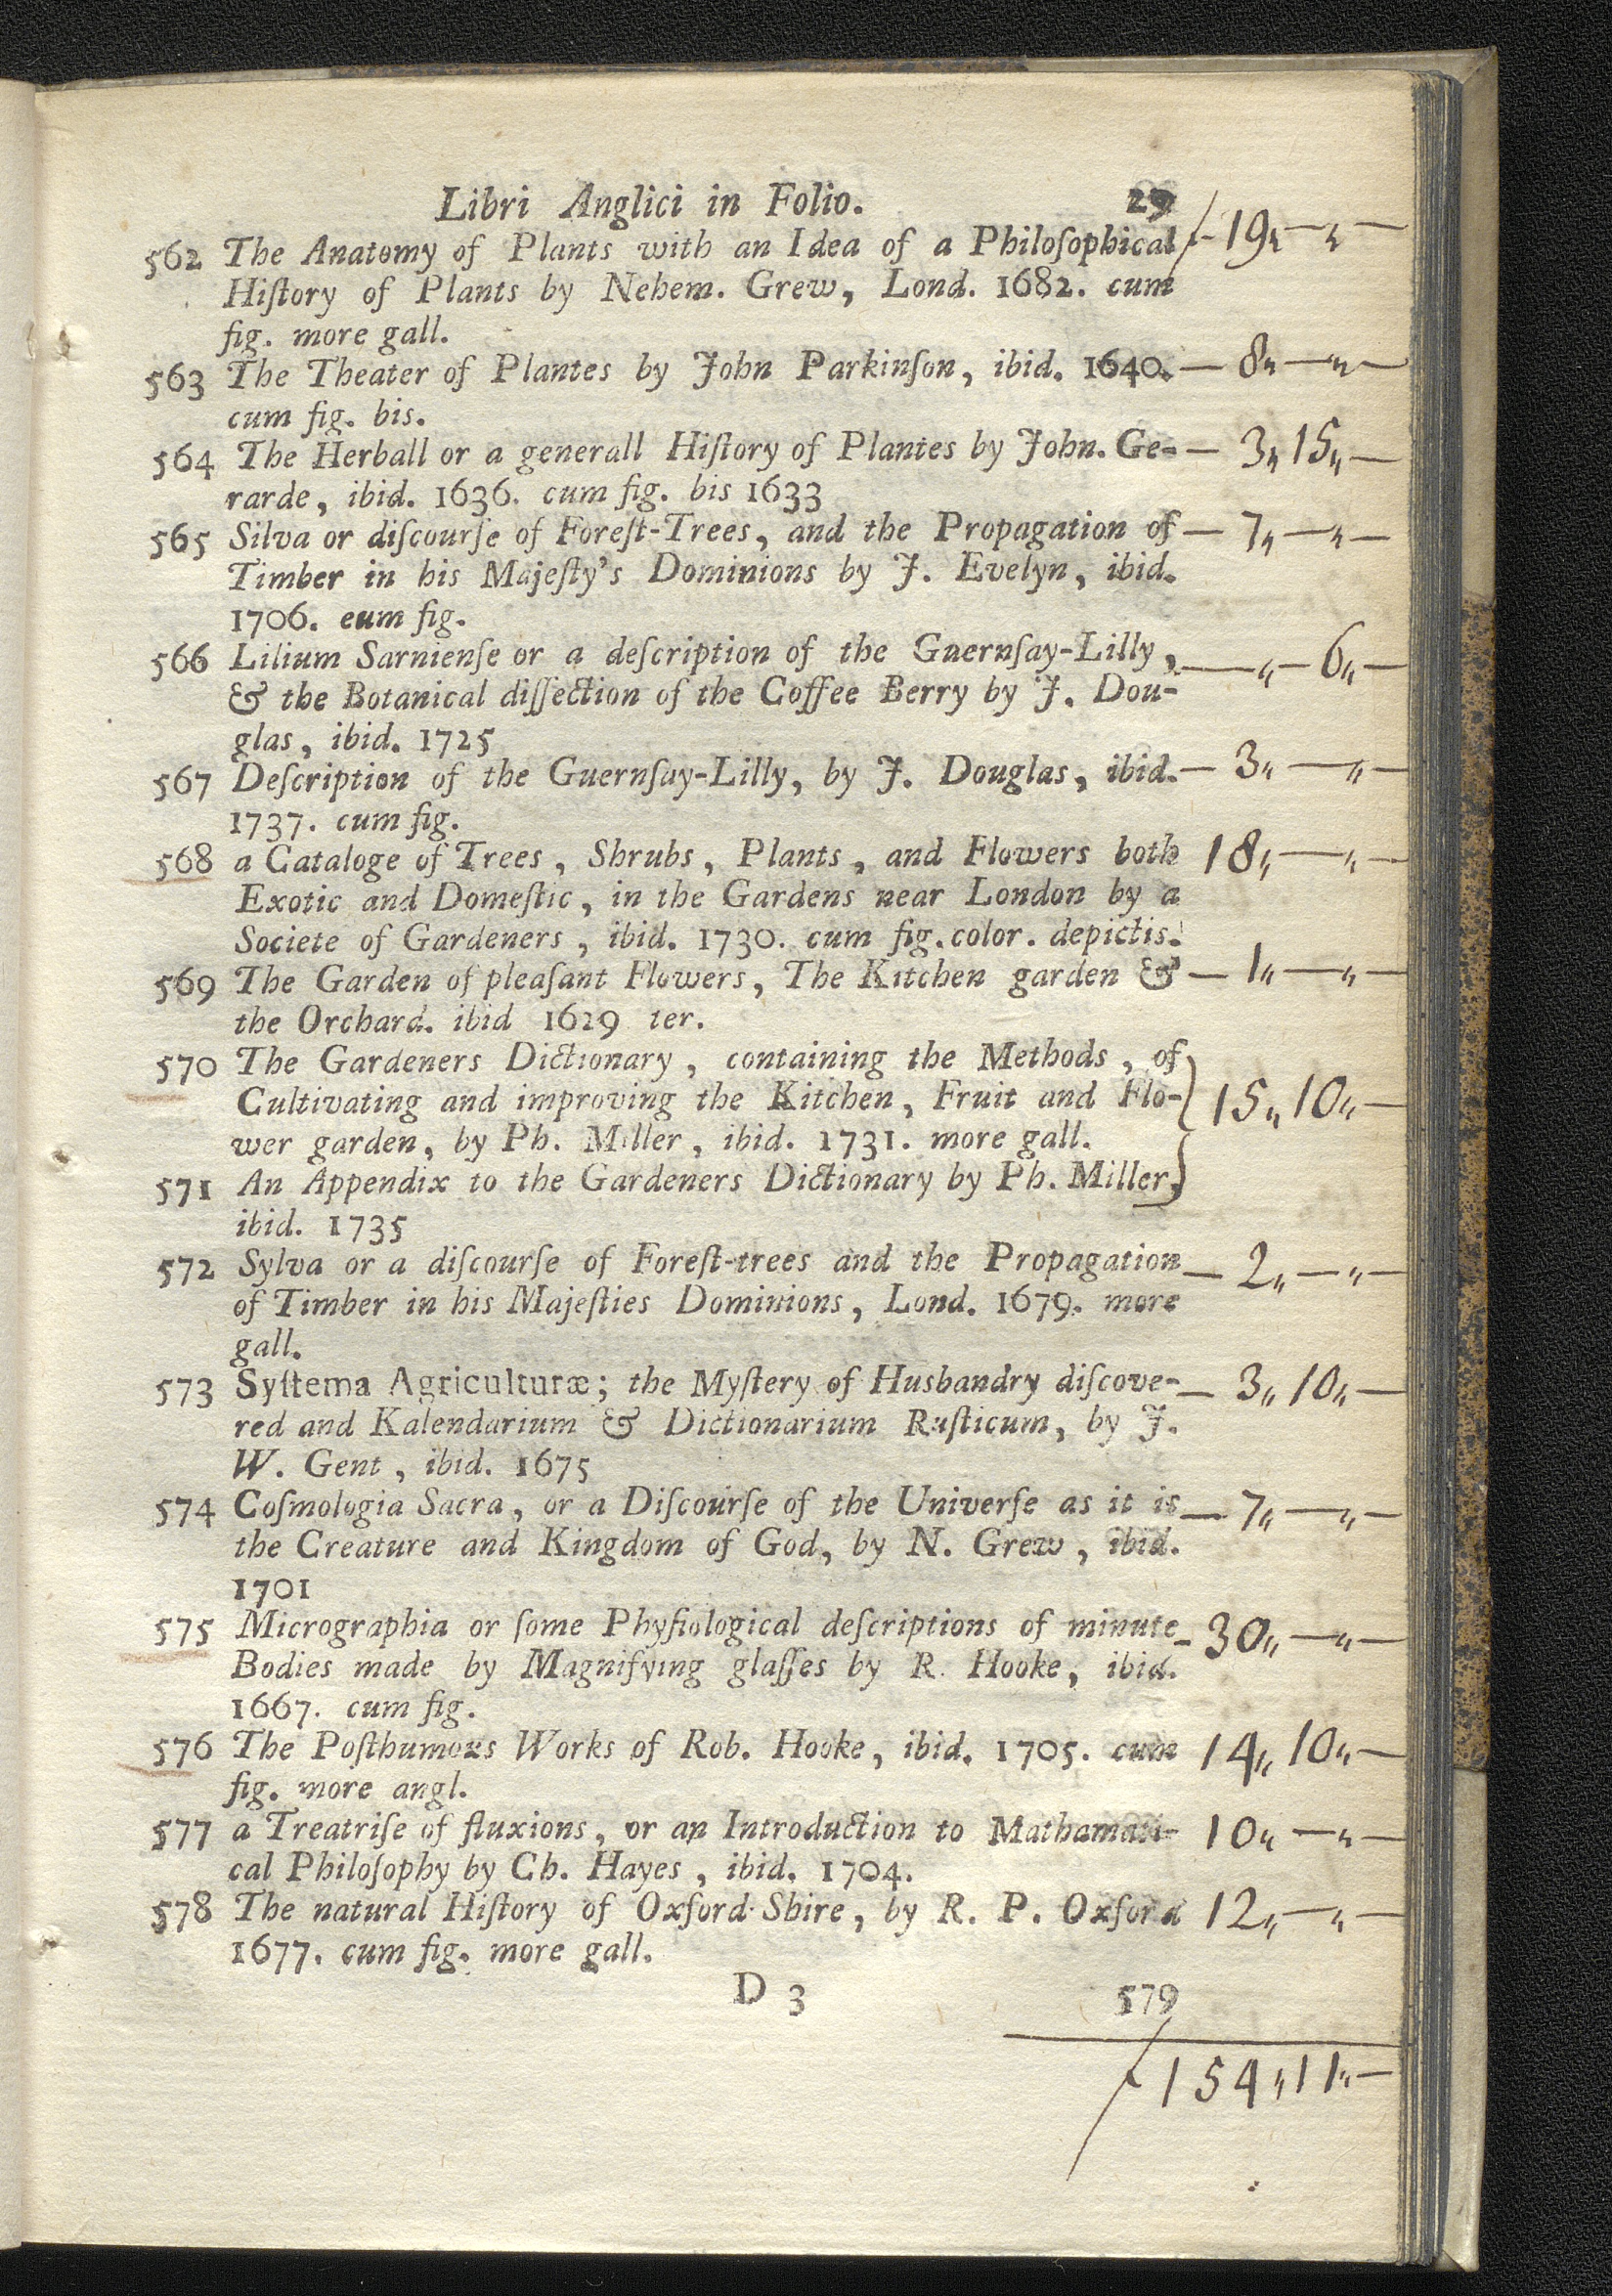 Libri Anglici in Folio. 29
562 The Anatomy of Plants with an Idea of a Philoſophical ƒ - 19„ — „ —
Hiſtory of Plants by Nehem. Grew, Lond. 1682. cum
fig. more gall.
563 The Theater of Plantes by John Parkinſon, ibid. 1640. — 8„ — „ —
cum fig. bis.
564 The Herball or a generall Hiſtory of Plantes by John. Ge- — 3„ 15„ —
rarde, ibid. 1636. cum fig. bis 1633
565 Silva or diſcourſe of Foreſt-Trees, and the Propagation of — 7„ — „ —
Timber in his Majeſty's Dominions by J. Evelyn, ibid.
1706. eum fig.
566 Lilium Sarnienſe or a deſcription of the Guernſay-Lilly, — „ — 6„ —
& the Botanical diſſection of the Coffee Berry by J. Dou-
glas, ibid. 1725
567 Deſcription of the Guernſay-Lilly, by J. Douglas, ibid. — 3„ — „ —
1737. cum fig.
568 a Cataloge of Trees, Shrubs, Plants, and Flowers both 18„ — „ —
Exotic and Domeſtic, in the Gardens near London by a
Societe of Gardeners, ibid. 1730. cum fig. color. depictis.
569 The Garden of pleaſant Flowers, The Kitchen garden & — 1„ — „ —
the Orchard. ibid 1629 ter.
570 The Gardeners Dictionary, containing the Methods, of
Cultivating and improving the Kitchen, Fruit and Flo- } 15„ 10„ —
wer garden, by Ph. Miller, ibid. 1731. more gall.
571 An Appendix to the Gardeners Dictionary by Ph. Miller, }
ibid. 1735
572 Sylva or a diſcourſe of Foreſt-trees and the Propagation — 2„ — „ —
of Timber in his Majeſties Dominions, Lond. 1679. more
gall.
573 Syſtema Agriculturæ; the Myſtery of Husbandry diſcove- — 3„ 10„ —
red and Kalendarium & Dictionarium Ruſticum, by J.
W. Gent, ibid. 1675
574 Coſmologia Sacra, or a Diſcourſe of the Univerſe as it is — 7„ — „ —
the Creature and Kingdom of God, by N. Grew, ibid.
1701
575 Micrographia or ſome Phyſiological deſcriptions of minute - 30„ — „ —
Bodies made by Magnifying glaſſes by R. Hooke, ibid.
1667. cum fig.
576 The Poſthumous Works of Rob. Hooke, ibid. 1705. cum 14„ 10„ —
fig. more angl.
577 a Treatriſe of fluxions, or an Introduction to Mathamati- 10„ — „ —
cal Philoſophy by Ch. Hayes, ibid. 1704.
578 The natural Hiſtory of Oxford-Shire, by R. P. Oxford 12„ — „ —
1677. cum fig. more gall.
D 3 579
ƒ 154„ 11„ —